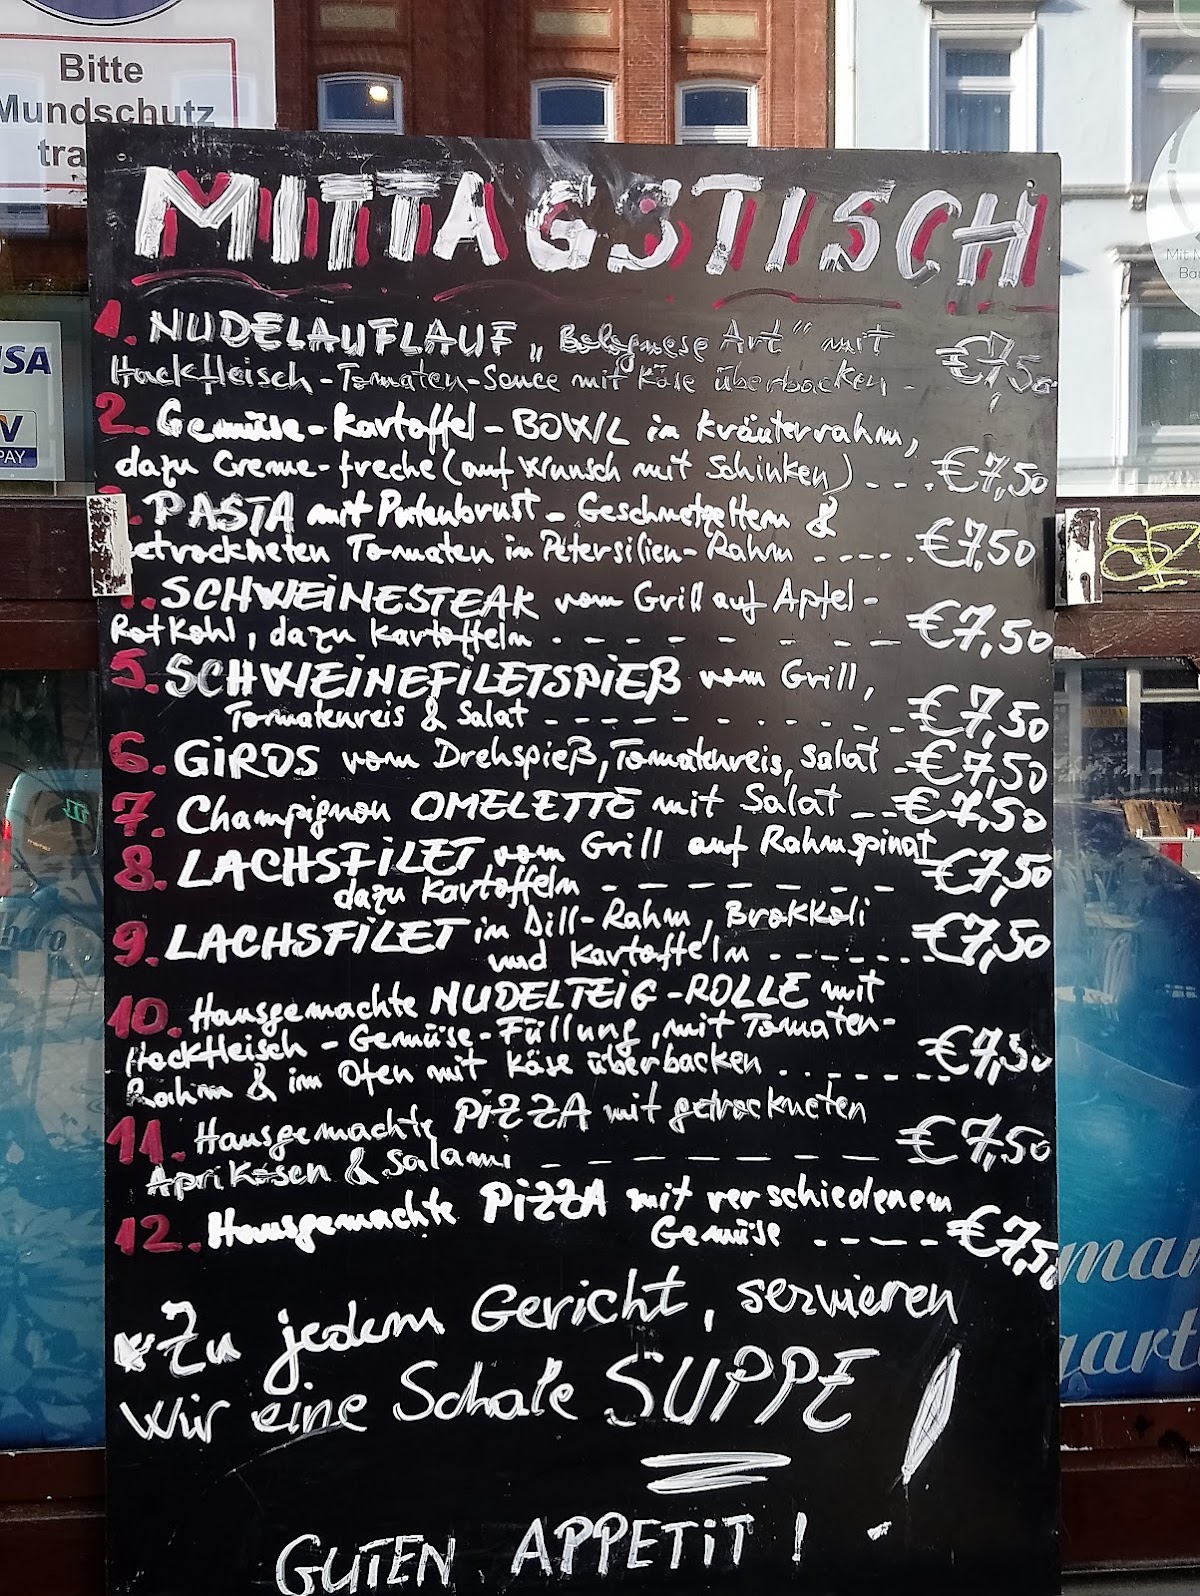 Bitte
Mundschutz
tra
MITTAGSTISCH
1. NUDELAUFLAUF „Bolognese Art" mit
Hackfleisch-Tomaten-Sauce mit Käse überbacken - €7,50
2. Gemüse-Kartoffel-BOWL in Kräuterrahm,
dazu Creme-freche (auf Wunsch mit Schinken) - - - €7,50
. PASTA mit Putenbrust-Geschnetzeltem &
etrockneten Tomaten in Petersilien-Rahm - - - - - €7,50
. SCHWEINESTEAK vom Grill auf Apfel-
Rotkohl, dazu Kartoffeln - - - - - - - - €7,50
5. SCHWEINEFILETSPIEß vom Grill,
Tomatenreis & Salat - - - - - - - - - - - €7,50
6. GIROS vom Drehspieß, Tomatenreis, Salat - €7,50
7. Champignon OMELETTE mit Salat - - €7,50
8. LACHSFILET vom Grill auf Rahmspinat
dazu Kartoffeln - - - - - - - €7,50
9. LACHSFILET in Dill-Rahm, Brokkoli
und Kartoffeln - - - - - - - €7,50
10. Hausgemachte NUDELTEIG-ROLLE mit
Hackfleisch-Gemüse-Füllung, mit Tomaten-
Rahm & im Ofen mit Käse überbacken - - - - - - - €7,50
11. Hausgemachte PIZZA mit getrockneten
Aprikosen & Salami - - - - - - - - €7,50
12. Hausgemachte PIZZA mit verschiedenem
Gemüse - - - - - €7,50
*Zu jedem Gericht, servieren
Wir eine Schale SUPPE !
GUTEN APPETIT ! -
PAY
man
gart